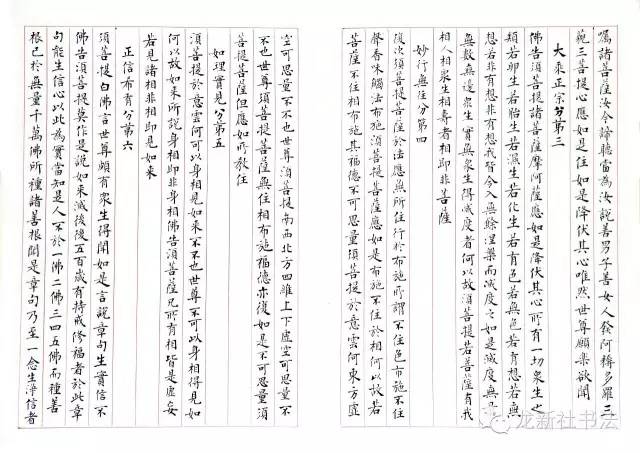 囑諸菩薩汝今諦聽當為汝說善男子善女人發阿耨多羅三
藐三菩提心應如是住如是降伏其心唯然世尊願樂欲聞
大乘正宗分第三
佛告須菩提諸菩薩摩訶薩應如是降伏其心所有一切眾生之
類若卵生若胎生若濕生若化生若有色若無色若有想若無
想若非有想非有想我皆令入無餘涅槃而滅度之如是滅度無量
無數無邊眾生實無眾生得滅度者何以故須菩提若菩薩有我
相人相眾生相壽者相即非菩薩
妙行無住分第四
復次須菩提菩薩於法應無所住行於布施所謂不住色布施不住
聲香味觸法布施須菩提菩薩應如是布施不住於相何以故若
菩薩不住相布施其福德不可思量須菩提於意雲何東方虛
空可思量不不也世尊須菩提南西北方四維上下虛空可思量不
不也世尊須菩提菩薩無住相布施福德亦復如是不可思量須
菩提菩薩但應如所教住
如理實見分第五
須菩提於意雲何可以身相見如來不不也世尊不可以身相得見如
何以故如來所說身相即非身相佛告須菩薩凡所有相皆是虛妄
若見諸相非相即見如來
正信希有分第六
須菩提白佛言世尊頗有眾生得聞如是言說章句生實信不
佛告須菩提莫作是說如來滅後後五百歲有持戒修福者於此章
句能生信心以此為實當知是人不於一佛二佛三四五佛而種善
根已於無量千萬佛所種諸善根聞是章句乃至一念生淨信者
龙新社书法